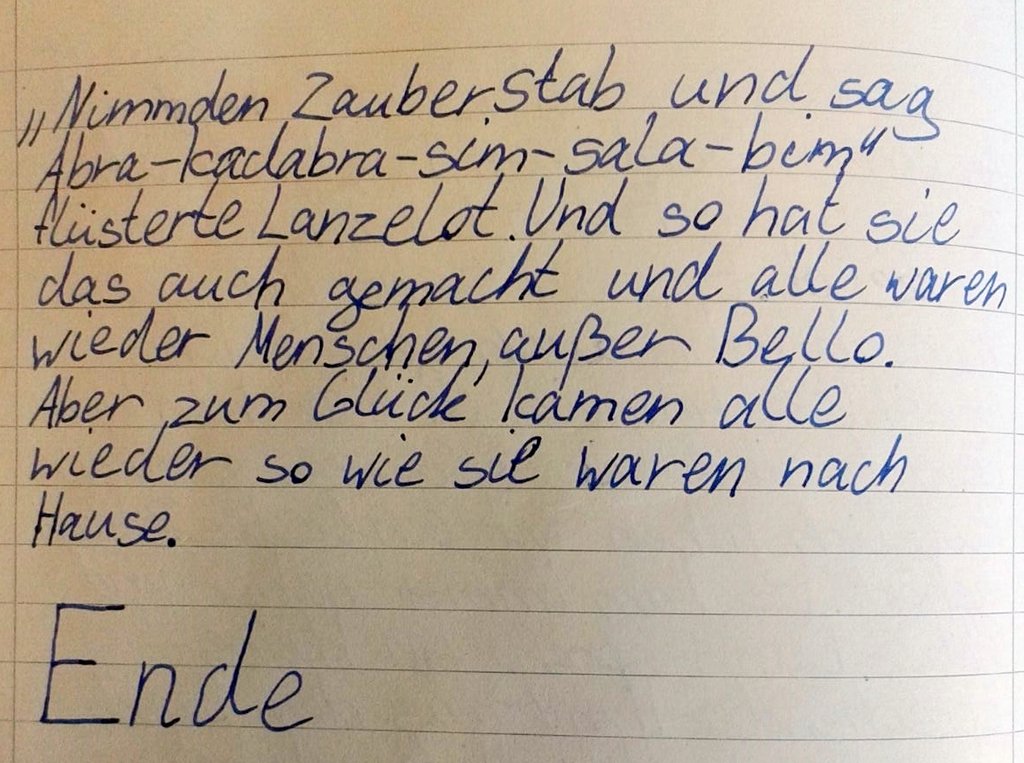 „Nimm den Zauberstab und sag
Abra-kadabra-sim-sala-bim"
flüsterte Lanzelot. Und so hat sie
das auch gemacht und alle waren
wieder Menschen, außer Bello.
Aber zum Glück kamen alle
wieder so wie sie waren nach
Hause.
Ende